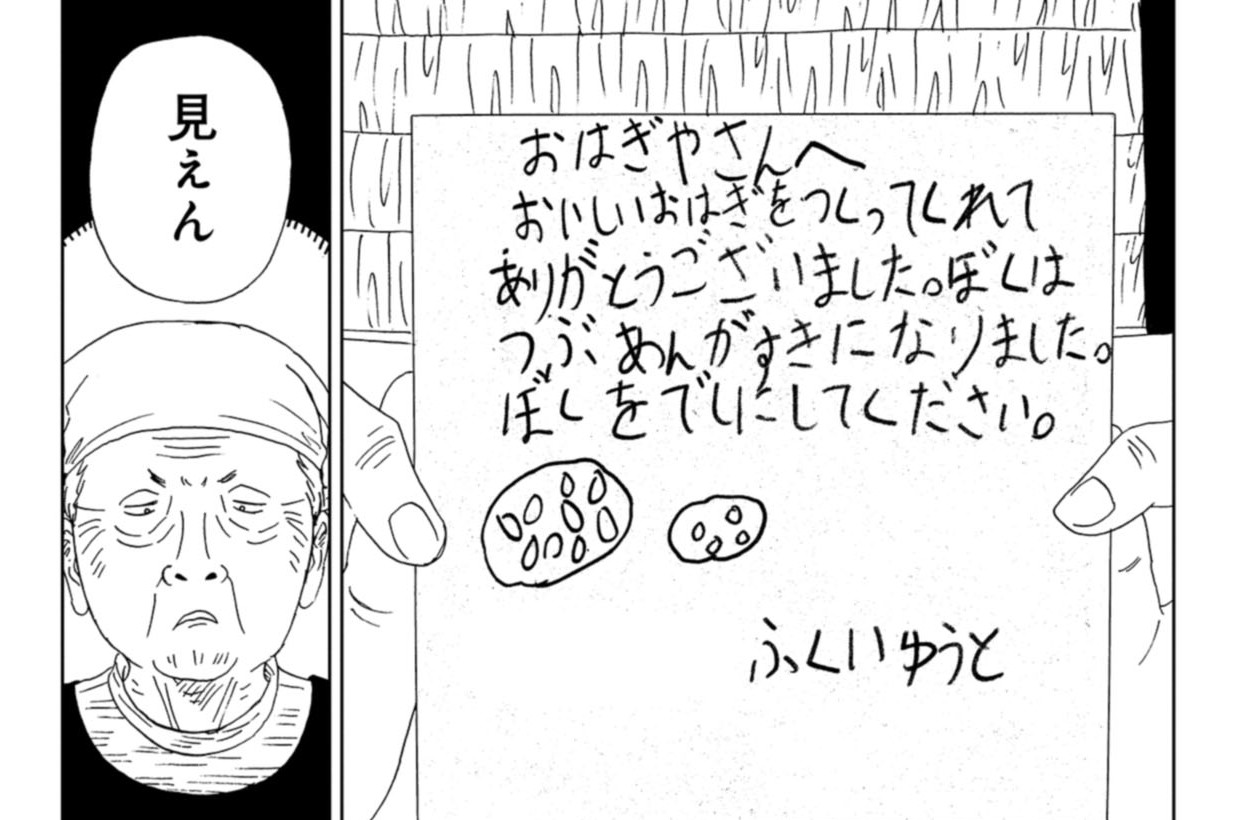 おはぎやさんへ
おいしいおはぎをつくってくれて
ありがとうございました。ぼくは
つぶあんがすきになりました。
ぼくをでしにしてください。
ふくいゆうと
見えん